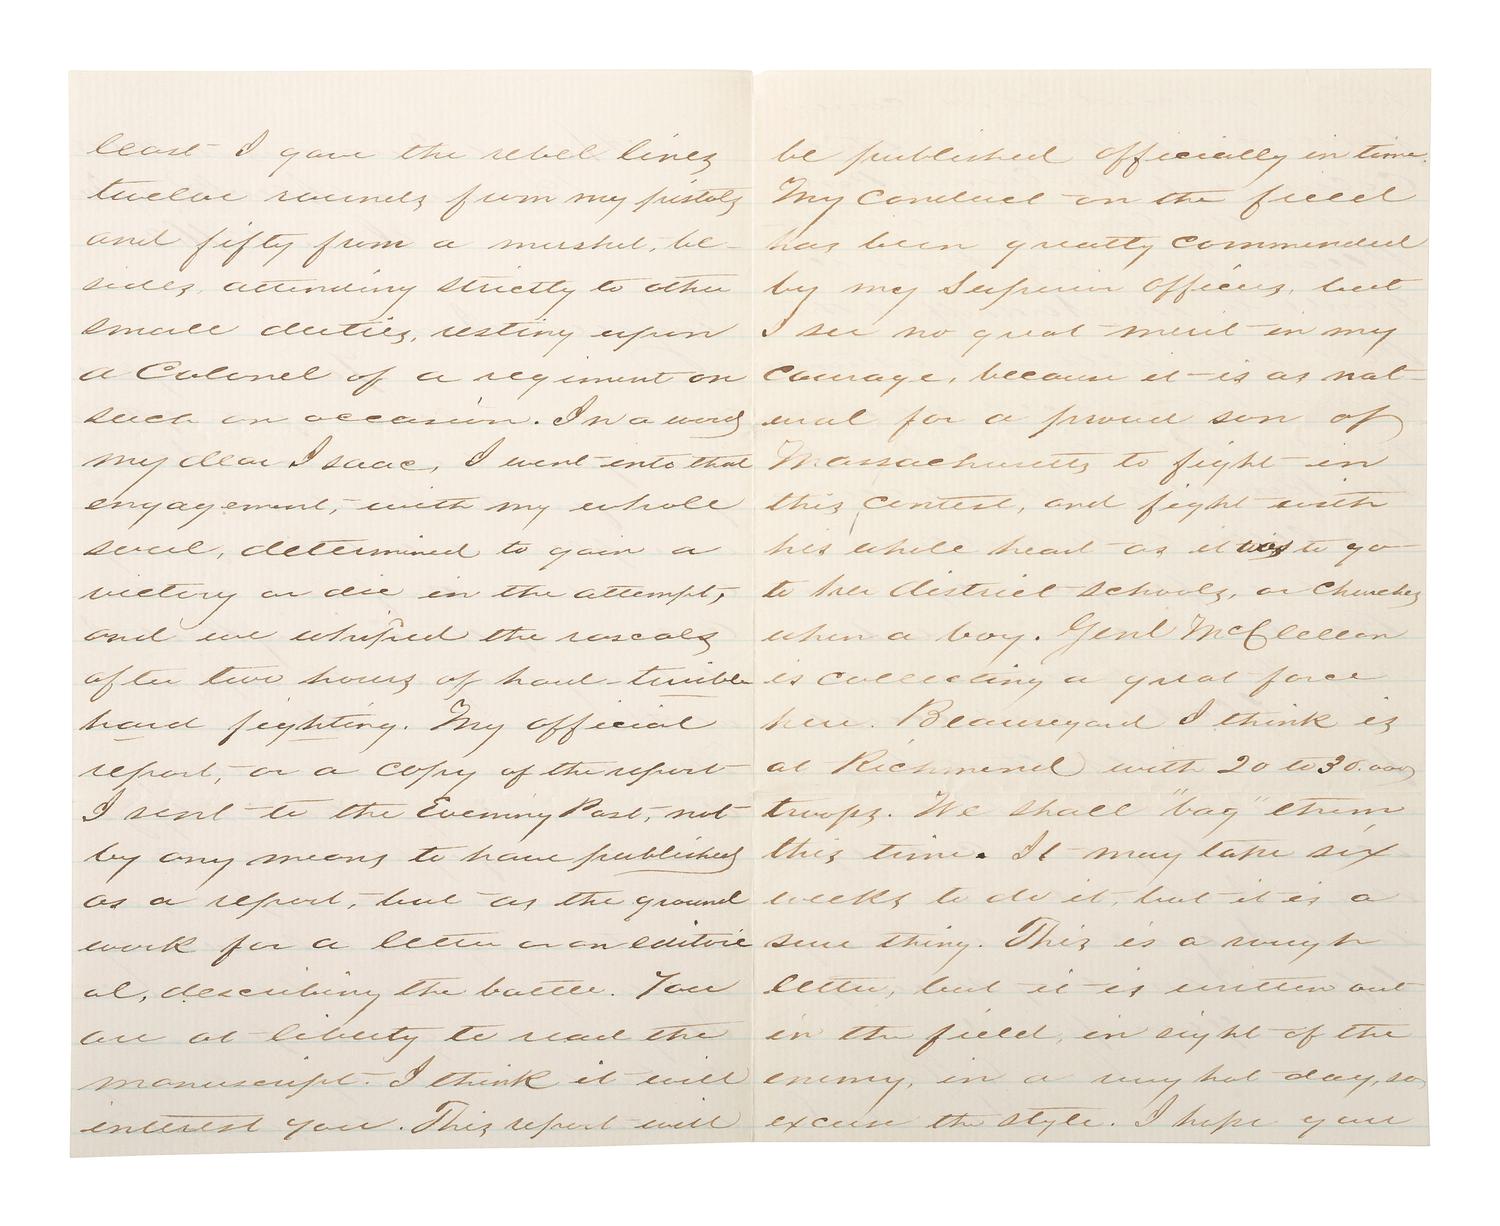 least I gave the rebel lines
twelve rounds from my pistols
and fifty from a musket, be-
sides, attending strictly to other
small duties, resting upon
a Colonel of a regiment on
such an occasion. In a word
my dear Isaac, I went into that
engagement, with my whole
soul, determined to gain a
victory or die in the attempt,
and we whipped the rascals
after two hours of hard - terrible
hard fighting. My official
report, or a copy of the report
I sent to the Evening Post, not
by any means to have published
as a report, but as the ground
work for a letter or an editori
al, describing the battle. You
are at liberty to read the
manuscript. I think it will
interest you. This report will
be published officially in time.
My conduct on the field
has been greatly commended
by my Superior Officers, but
I see no great merit in my
courage, because it is as nat-
ural for a proud son of
Massachusetts to fight in
this contest, and fight with
his whole heart as it was to go
to her district schools, or Churches
when a boy. Genl McClellan
is collecting a great force
here. Beauregard I think is
at Richmond with 20 to 30.000
troops. We shall "bag" them
this time. It may take six
weeks to do it, but it is a
sure thing. This is a rough
letter, but it is written out
in the field, in sight of the
enemy, in a very hot day, so
excuse the style. I hope you